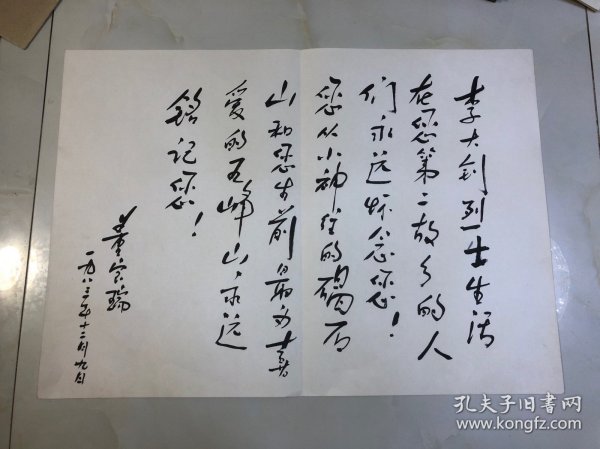 李大钊烈士生活
在您第二故乡的人
们永远怀念您！
您从小神往的碣石
山和您生前最为喜
爱的五峰山，永远
铭记您！
董宝瑞
一九八三年十二月九日
孔夫子旧书网
www.kongfz.com